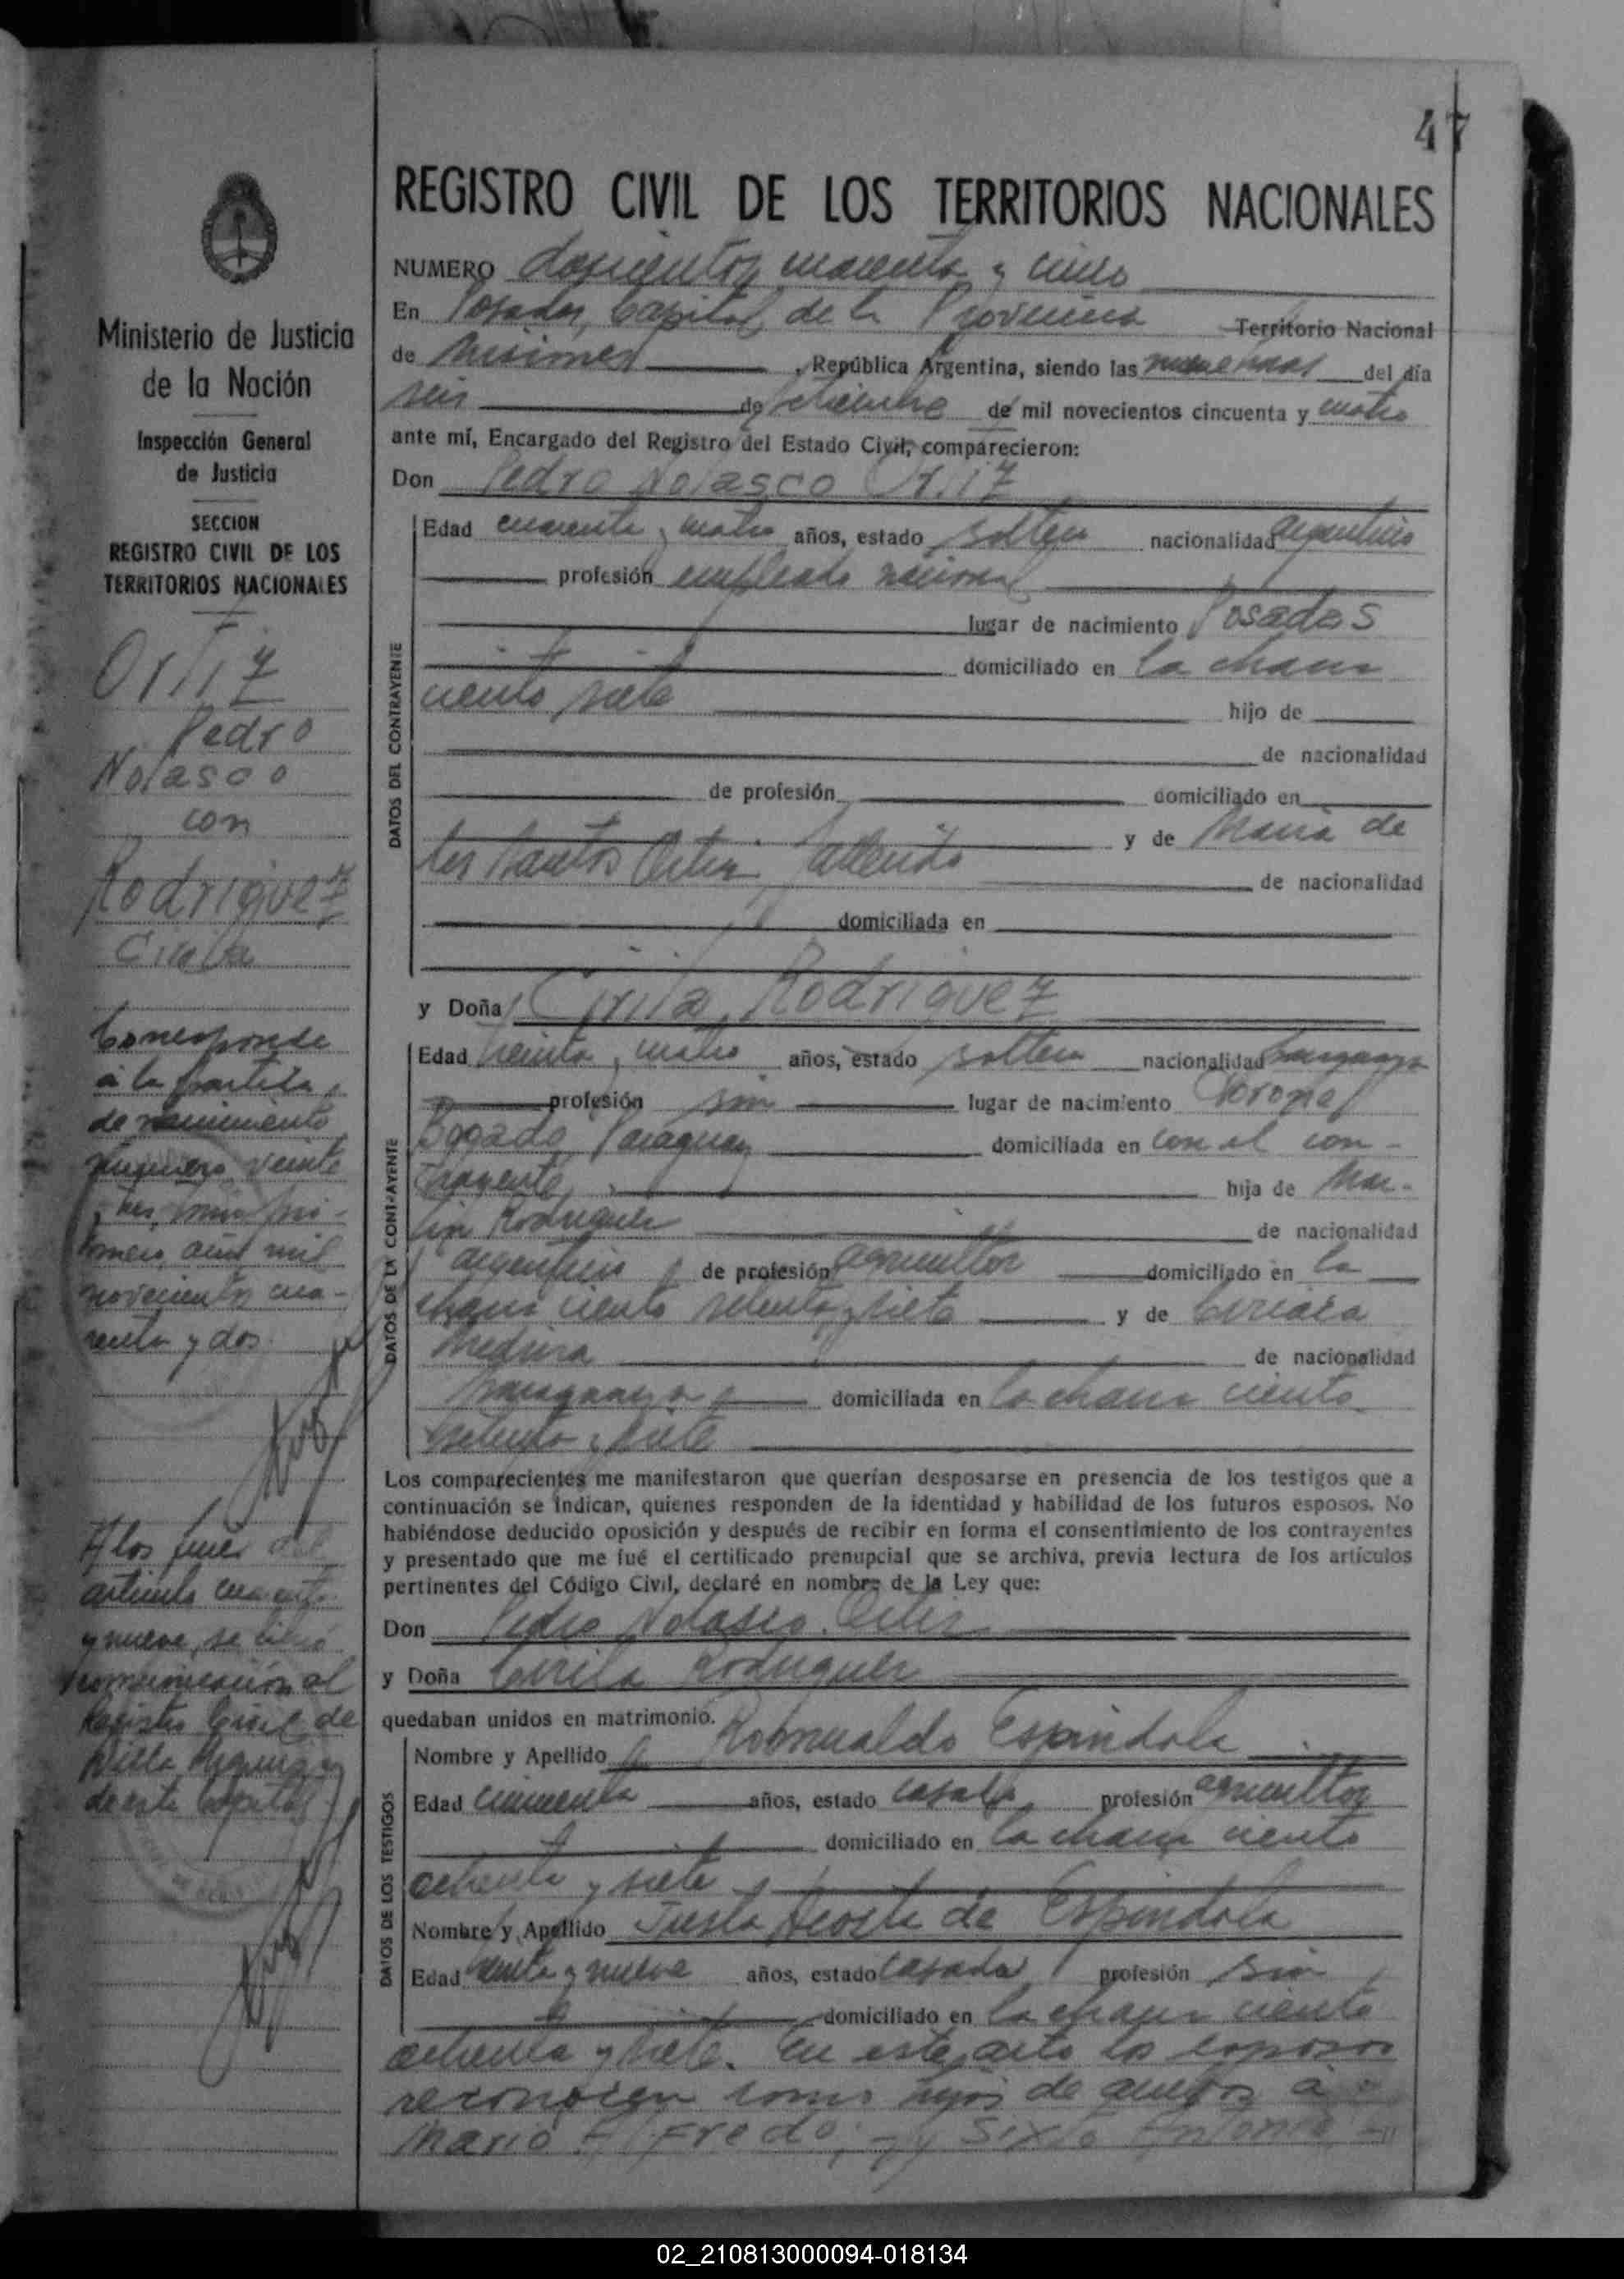 47
REGISTRO CIVIL DE LOS TERRITORIOS NACIONALES
Ministerio de Justicia
de la Nación
Inspección General
de Justicia
SECCION
REGISTRO CIVIL DE LOS
TERRITORIOS NACIONALES
Ortiz
Pedro
Nolasco
con
Rodriguez
Cirila
Corresponde
a la partida
de nacimiento
número veinte
y tres, tomo pri-
mero, año mil
novecientos cua-
renta y dos.
A los fines del
artículo cuarenta
y nueve, se libró
comunicación al
Registro Civil de
Villa
de esta Capital
NUMERO doscientos cuarenta y cinco
En Posadas, Capital de la Provincia Territorio Nacional
de Misiones, República Argentina, siendo las nueve horas del día
seis de de mil novecientos cincuenta y cuatro
ante mí, Encargado del Registro del Estado Civil, comparecieron:
Don Pedro Nolasco Ortiz
DATOS DEL CONTRAYENTE
Edad cuarenta y cuatro años, estado soltero nacionalidad argentino
profesión empleado nacional
lugar de nacimiento Posadas
domiciliado en la chacra
ciento siete hijo de
de nacionalidad
de profesión domiciliado en
y de María de
los Santos Ortiz, fallecida de nacionalidad
domiciliada en
y Doña Cirila Rodriguez
DATOS DE LA CONTRAYENTE
Edad treinta y cuatro años, estado soltera nacionalidad paraguaya
profesión sin lugar de nacimiento Coronel
Bogado, Paraguay domiciliada en con el con-
trayente, hija de Mar-
tín Rodriguez de nacionalidad
argentino de profesión agricultor domiciliado en la
chacra ciento setenta y siete y de Ciriaca
Medina de nacionalidad
paraguaya domiciliada en la chacra ciento
setenta y siete
Los comparecientes me manifestaron que querían desposarse en presencia de los testigos que a
continuación se indican, quienes responden de la identidad y habilidad de los futuros esposos. No
habiéndose deducido oposición y después de recibir en forma el consentimiento de los contrayentes
y presentado que me fué el certificado prenupcial que se archiva, previa lectura de los artículos
pertinentes del Código Civil, declaré en nombre de la Ley que:
Don Pedro Nolasco Ortiz
y Doña Cirila Rodriguez
quedaban unidos en matrimonio.
DATOS DE LOS TESTIGOS
Nombre y Apellido Romualdo Espindola
Edad cincuenta años, estado casado profesión agricultor
domiciliado en la chacra ciento
ochenta y siete
Nombre y Apellido Justa Acosta de Espindola
Edad y nueve años, estado casada profesión sin
domiciliado en la chacra ciento
ochenta y siete. En este acto los esposos
reconocen como hijos de ambos a
Mario Alfredo, y Sixto Antonio
02_210813000094-018134